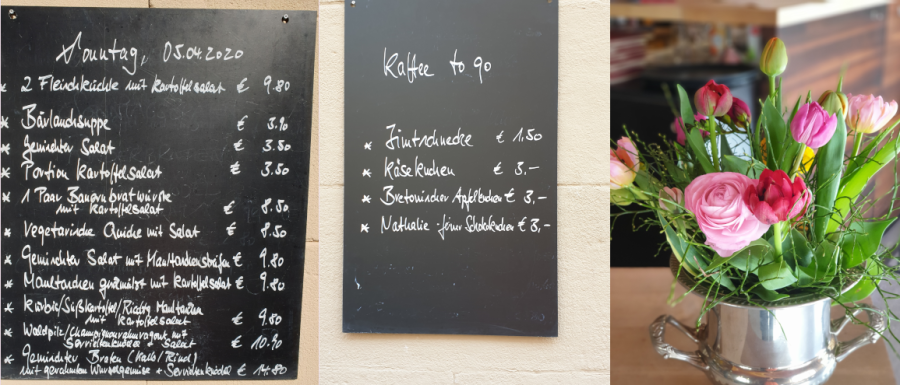 Sonntag, 05.04.2020
* 2 Fleischküchle mit Kartoffelsalat € 9.80
* Bärlauchsuppe € 3.90
* Gemischter Salat € 3.50
* Portion Kartoffelsalat € 3.50
* 1 Paar Bauernbratwürste
mit Kartoffelsalat € 8.50
* Vegetarische Quiche mit Salat € 8.50
* Gemischter Salat mit Maultaschenstreifen € 9.80
* Maultaschen geschmälzt mit Kartoffelsalat € 9.80
* Kürbis/Süßkartoffel/Ricotta Maultaschen
mit Kartoffelsalat € 9.80
* Waldpilz/Champignonrahmragout mit
Serviettenknödel + Salat € 10.90
* Gemischter Braten (Kalb/Rind)
mit gerahmten Wurzelgemüse + Serviettenknödel € 14.80
Kaffee to go
* Zimtschnecke € 1.50
* Käsekuchen € 3.-
* Bretonischer Apfelkuchen € 3.-
* Nathalie feiner Schokokuchen € 3,-